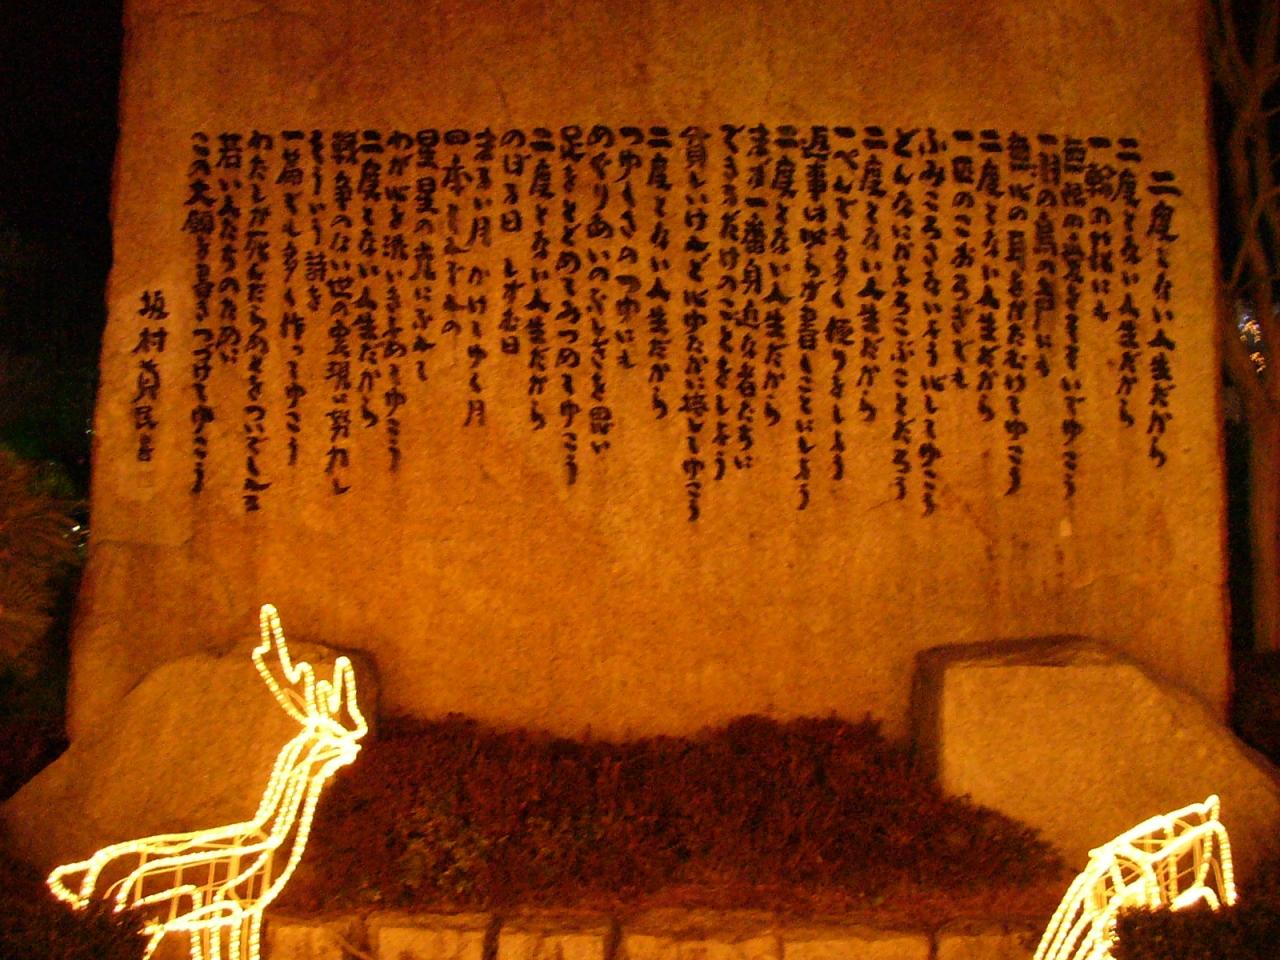 二度とない人生だから
二度とない人生だから
一輪の花にも
無限の愛をそそいでゆこう
一羽の鳥の声にも
無心の耳をかたむけてゆこう
二度とない人生だから
一匹のこおろぎでも
ふみころさないように心してゆこう
どんなにかよろこぶことだろう
二度とない人生だから
一ぺんでも多く便りをしよう
返事は必らず書くことにしよう
二度とない人生だから
まず一番身近な者たちに
できるだけのことをしよう
貧しいけれど心ゆたかに接してゆこう
二度とない人生だから
つゆくさのつゆにも
めぐりあいのふしぎさを思い
足をとどめてみつめてゆこう
二度とない人生だから
のぼる日 しずむ日
まるい月 かけてゆく月
四季それぞれの
星星の光にふれて
わが心を洗いきよめてゆこう
二度とない人生だから
戦争のない世の実現に努力し
そういう詩を
一篇でも多く作ってゆこう
わたしが死んだらあとをついでくれる
若い人たちのために
この大願を書きつづけてゆこう
坂村真民書